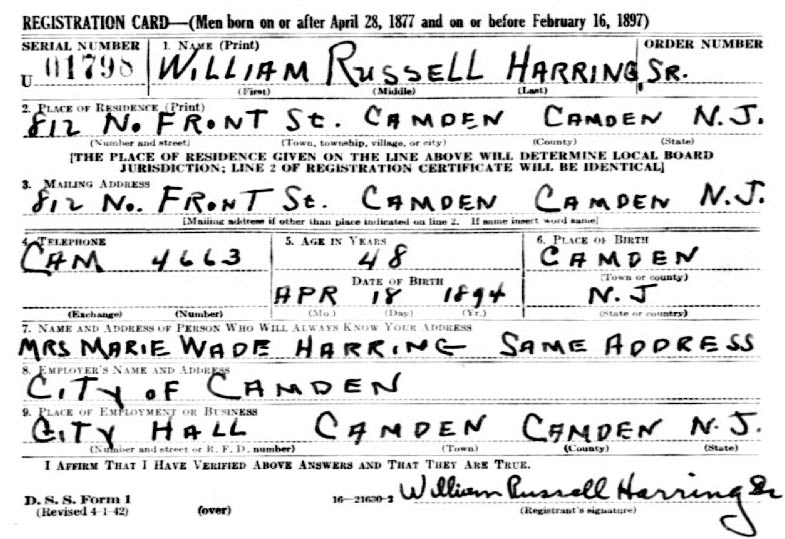 REGISTRATION CARD—(Men born on or after April 28, 1877 and on or before February 16, 1897)
SERIAL NUMBER 1. NAME (Print) ORDER NUMBER
U 01798 WILLIAM RUSSELL HARRING, SR.
(First) (Middle) (Last)
2. PLACE OF RESIDENCE (Print)
812 No. FRONT St. CAMDEN CAMDEN N.J.
(Number and street) (Town, township, village, or city) (County) (State)
[THE PLACE OF RESIDENCE GIVEN ON THE LINE ABOVE WILL DETERMINE LOCAL BOARD
JURISDICTION; LINE 2 OF REGISTRATION CERTIFICATE WILL BE IDENTICAL]
3. MAILING ADDRESS
812 No. FRONT St. CAMDEN CAMDEN N.J.
[Mailing address if other than place indicated on line 2. If same insert word same]
4. TELEPHONE 5. AGE IN YEARS 6. PLACE OF BIRTH
CAM 4663 48 CAMDEN
DATE OF BIRTH (Town or county)
APR 18 1894 N.J
(Exchange) (Number) (Mo.) (Day) (Yr.) (State or country)
7. NAME AND ADDRESS OF PERSON WHO WILL ALWAYS KNOW YOUR ADDRESS
MRS MARIE WADE HARRING SAME ADDRESS
8. EMPLOYER'S NAME AND ADDRESS
CITY OF CAMDEN
9. PLACE OF EMPLOYMENT OR BUSINESS
CITY HALL CAMDEN CAMDEN N.J.
(Number and street or R. F. D. number) (Town) (County) (State)
I AFFIRM THAT I HAVE VERIFIED ABOVE ANSWERS AND THAT THEY ARE TRUE.
D. S. S. Form 1 16—21630-2 William Russell Harring Sr
(Revised 4-1-42) (over) (Registrant's signature)